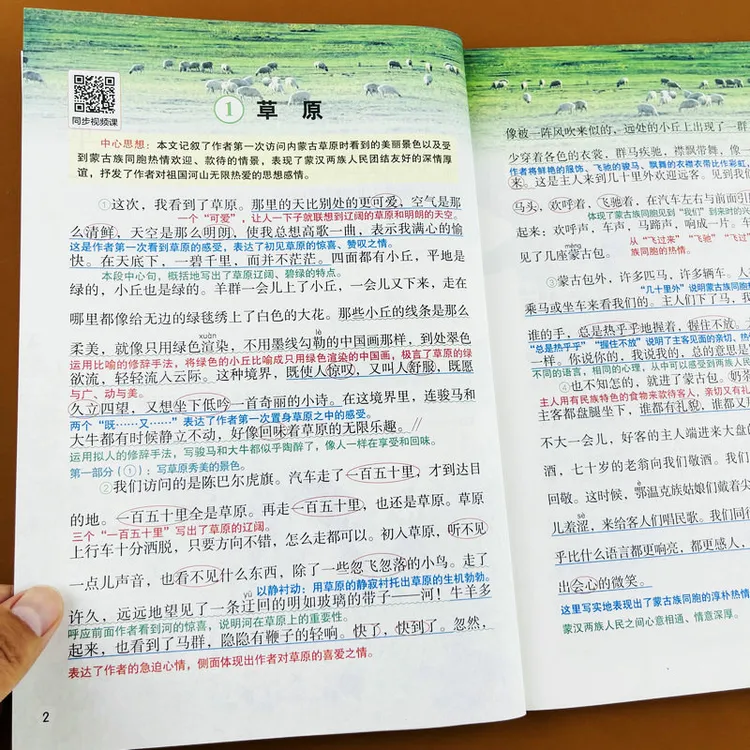 同步视频课
① 草 原
中心思想：本文记叙了作者第一次访问内蒙古草原时看到的美丽景色以及受
到蒙古族同胞热情欢迎、款待的情景，表现了蒙汉两族人民团结友好的深情厚
谊，抒发了作者对祖国河山无限热爱的思想感情。
①这次，我看到了草原。那里的天比别处的更可爱，空气是那
一个“可爱”，让人一下子就联想到辽阔的草原和明朗的天空。
么清鲜，天空是那么明朗，使我总想高歌一曲，表示我满心的愉
这是作者第一次看到草原的感受，表达了初见草原的惊喜、赞叹之情。
快。在天底下，一碧千里，而并不茫茫。四面都有小丘，平地是
本段中心句，概括地写出了草原辽阔、碧绿的特点。
绿的，小丘也是绿的。羊群一会儿上了小丘，一会儿又下来，走在
哪里都像给无边的绿毯绣上了白色的大花。那些小丘的线条是那么
xuàn lè
柔美，就像只用绿色渲染，不用墨线勾勒的中国画那样，到处翠色
运用比喻的修辞手法，将绿色的小丘比喻成只用绿色渲染的中国画，极言了草原的绿
欲流，轻轻流入云际。这种境界，既使人惊叹，又叫人舒服，既愿
与广、动与美。
久立四望，又想坐下低吟一首奇丽的小诗。在这境界里，连骏马和
两个“既……又……”表达了作者第一次置身草原之中的感受。
大牛都有时候静立不动，好像回味着草原的无限乐趣。//
运用拟人的修辞手法，写骏马和大牛都似乎陶醉了，像人一样在享受和回味。
第一部分（①）：写草原秀美的景色。
②我们访问的是陈巴尔虎旗。汽车走了一百五十里，才到达目
的地。一百五十里全是草原。再走一百五十里，也还是草原。草原
三个“一百五十里”写出了草原的辽阔。
上行车十分洒脱，只要方向不错，怎么走都可以。初入草原，听不见
一点儿声音，也看不见什么东西，除了一些忽飞忽落的小鸟。走了
yū 以静衬动：用草原的静寂衬托出草原的生机勃勃。
许久，远远地望见了一条迂回的明如玻璃的带子——河！牛羊多
呼应前面作者看到河的惊喜，说明河在草原上的重要性。
起来，也看到了马群，隐隐有鞭子的轻响。快了，快到了。忽然，
表达了作者的急迫心情，侧面体现出作者对草原的喜爱之情。
2
像被一阵风吹来似的，远处的小丘上出现了一群
少穿着各色的衣裳，群马疾驰，襟飘带舞，像一
作者将鲜艳的服饰、飞驰的骏马、飘舞的衣襟衣带比作彩虹，
来。这是主人来到几十里外欢迎远客。见到我们
马头，欢呼着，飞驰着，在汽车左右与前面引
体现了蒙古族同胞见到“我们”到来时的兴
起来：欢呼声，车声，马蹄声，响成一片。车
měng 从“飞过来”“飞驰”“飞过
见了几座蒙古包。 族同胞的热情。
③蒙古包外，许多匹马，许多辆车。人
“几十里外”说明蒙古族同胞热
乘马或坐车来看我们的。主人们下了马，我
谁的手，总是热乎乎地握着，握住不放。
“总是热乎乎”“握住不放”说明了主客见面的亲切、热情
一样。你说你的，我说我的，总的意思是
不同的语言，相同的心理，从中可以感受到两族人民
④也不知怎的，就进了蒙古包。奶茶
主人用有民族特色的食物来款待客人，亲切又有礼
主客都盘腿坐下，谁都有礼貌，谁都又
不大一会儿，好客的主人端进来大盘的
酒，七十岁的老翁向我们敬酒。我们
è
回敬。这时候，鄂温克族姑娘们戴着尖
儿羞涩，来给客人们唱民歌。我们同
乎比什么语言都更响亮，都更感人，
出会心的微笑。
这里写实地表现出了蒙古族同胞的淳朴热情
蒙汉两族人民之间心意相通、情意深厚。